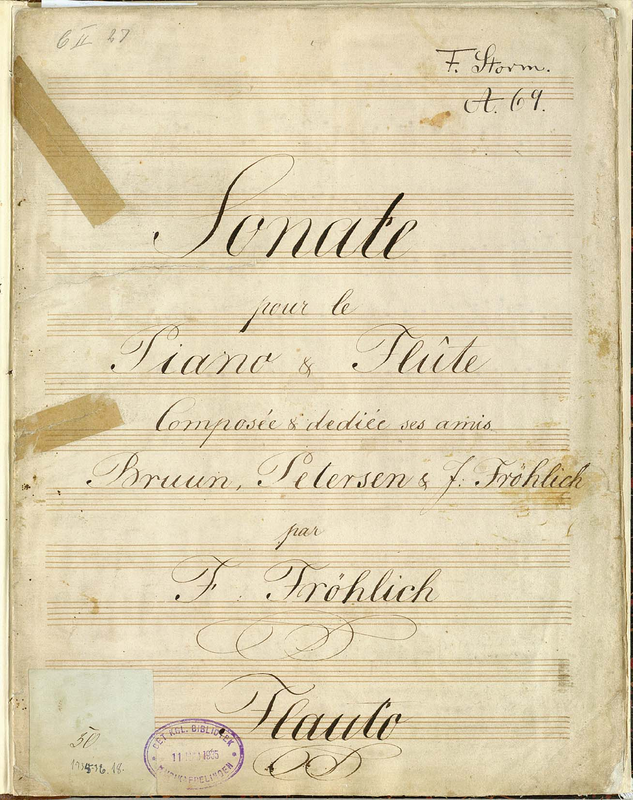 6 II 27
F. Storm.
A. 69.
Sonate
pour le
Piano & Flûte
Composée & dediée ses amis
Bruun, Petersen & J. Fröhlich
par
F. Fröhlich
Flauto
50
DET KGL. BIBLIOTEK
11 1935